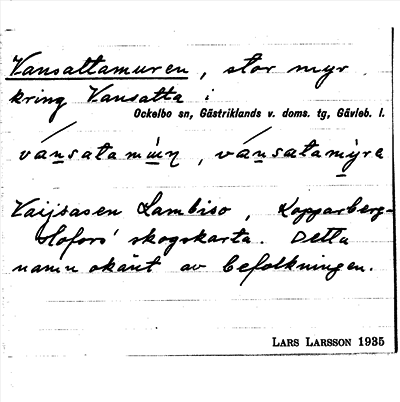 Vansattamuren, stor myr
kring Vansatta i
Ockelbo sn, Gästriklands v. doms. tg, Gävleb. l.
vánsatamúṇ, vánsatamỳra
Vaijsasen Lambiso, Kopparberg-
Hofors' skogskarta. Detta
namn okänt av befolkningen.
LARS LARSSON 1935